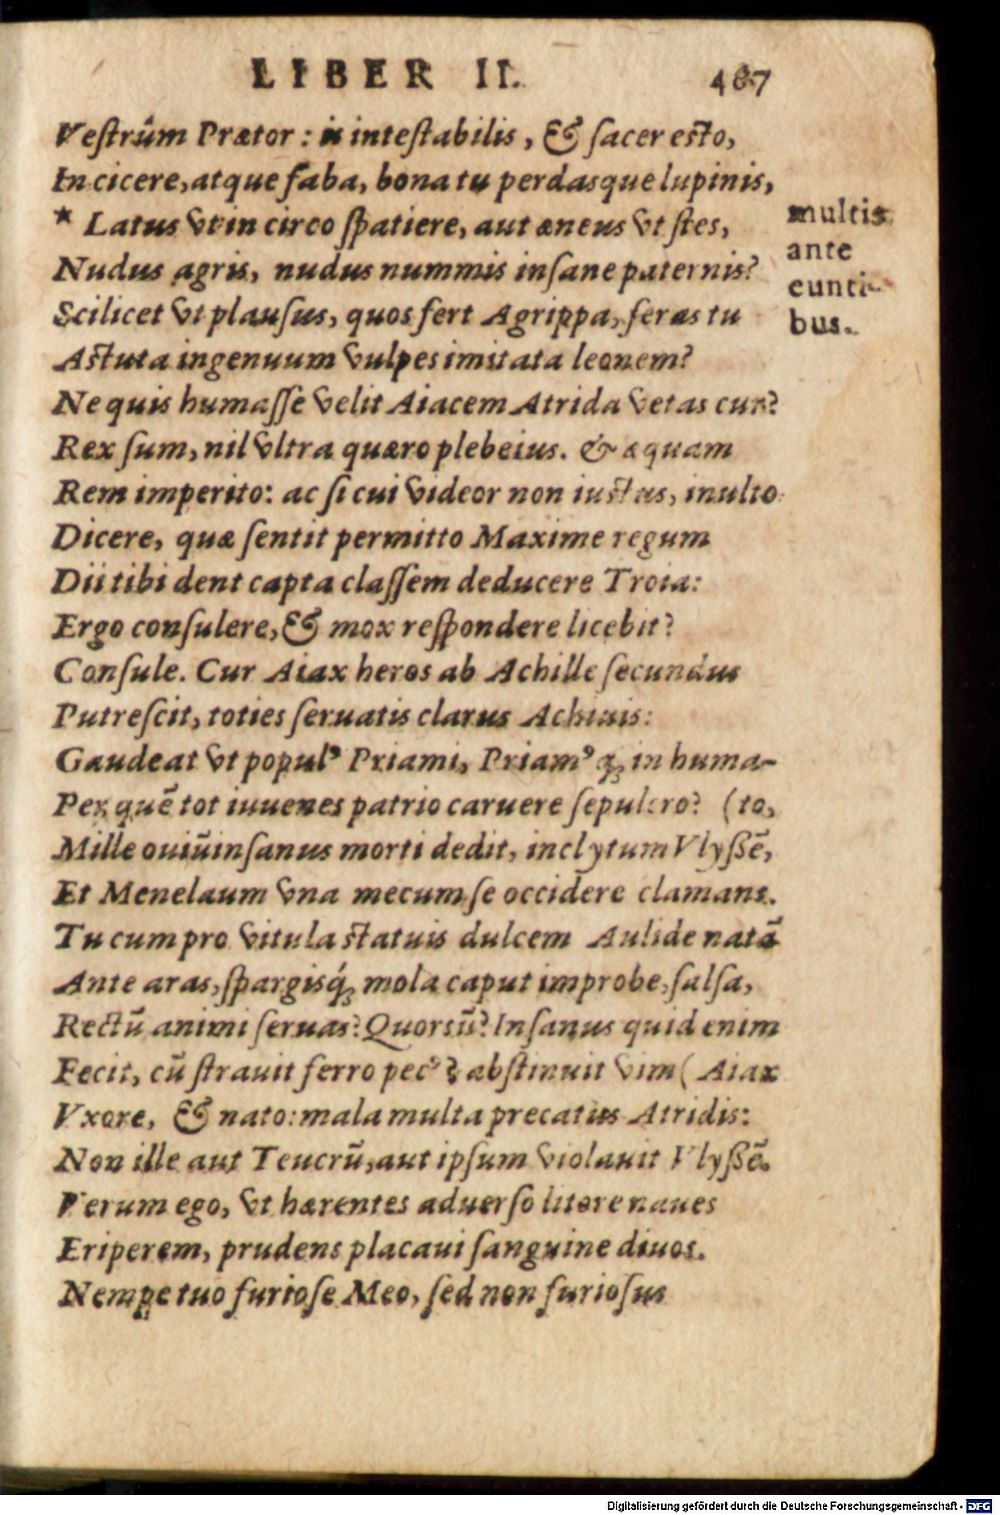 LIBER II. 467
Vestrûm Prætor: is intestabilis, & sacer esto,
In cicere, atque faba, bona tu perdasque lupinis,
* Latus vt in circo spatiere, aut æneus vt stes,
Nudus agris, nudus nummis insane paternis?
Scilicet vt plausus, quos fert Agrippa, feras tu
Astuta ingenuum vulpes imitata leonem?
Ne quis humasse velit Aiacem Atrida vetas cur?
Rex sum, nil vltra quæro plebeius. & æquam
Rem imperito: ac si cui videor non iustus, inulto
Dicere, quæ sentit permitto Maxime regum
Dii tibi dent capta classem deducere Troia:
Ergo consulere, & mox respondere licebit?
Consule. Cur Aiax heros ab Achille secundus
Putrescit, toties seruatis clarus Achiuis:
Gaudeat vt populꝰ Priami, Priamꝰq; in huma-
Per quē tot iuuenes patrio caruere sepulcro? (to,
Mille ouiū insanus morti dedit, inclytum Vlyßē,
Et Menelaum vna mecum se occidere clamans.
Tu cum pro vitula statuis dulcem Aulide natā
Ante aras, spargisq́; mola caput improbe, salsa,
Rectū animi seruas? Quorsū? Insanus quid enim
Fecit, cū strauit ferro pecꝰ? abstinuit vim (Aiax
Vxore, & nato: mala multa precatus Atridis:
Non ille aut Teucrū, aut ipsum violauit Vlyßē.
Verum ego, vt hærentes aduerso litore naues
Eriperem, prudens placaui sanguine diuos.
Nempe tuo furiose Meo, sed non furiosus
multis
ante
eunti-
bus.
Digitalisierung gefördert durch die Deutsche Forschungsgemeinschaft - DFG